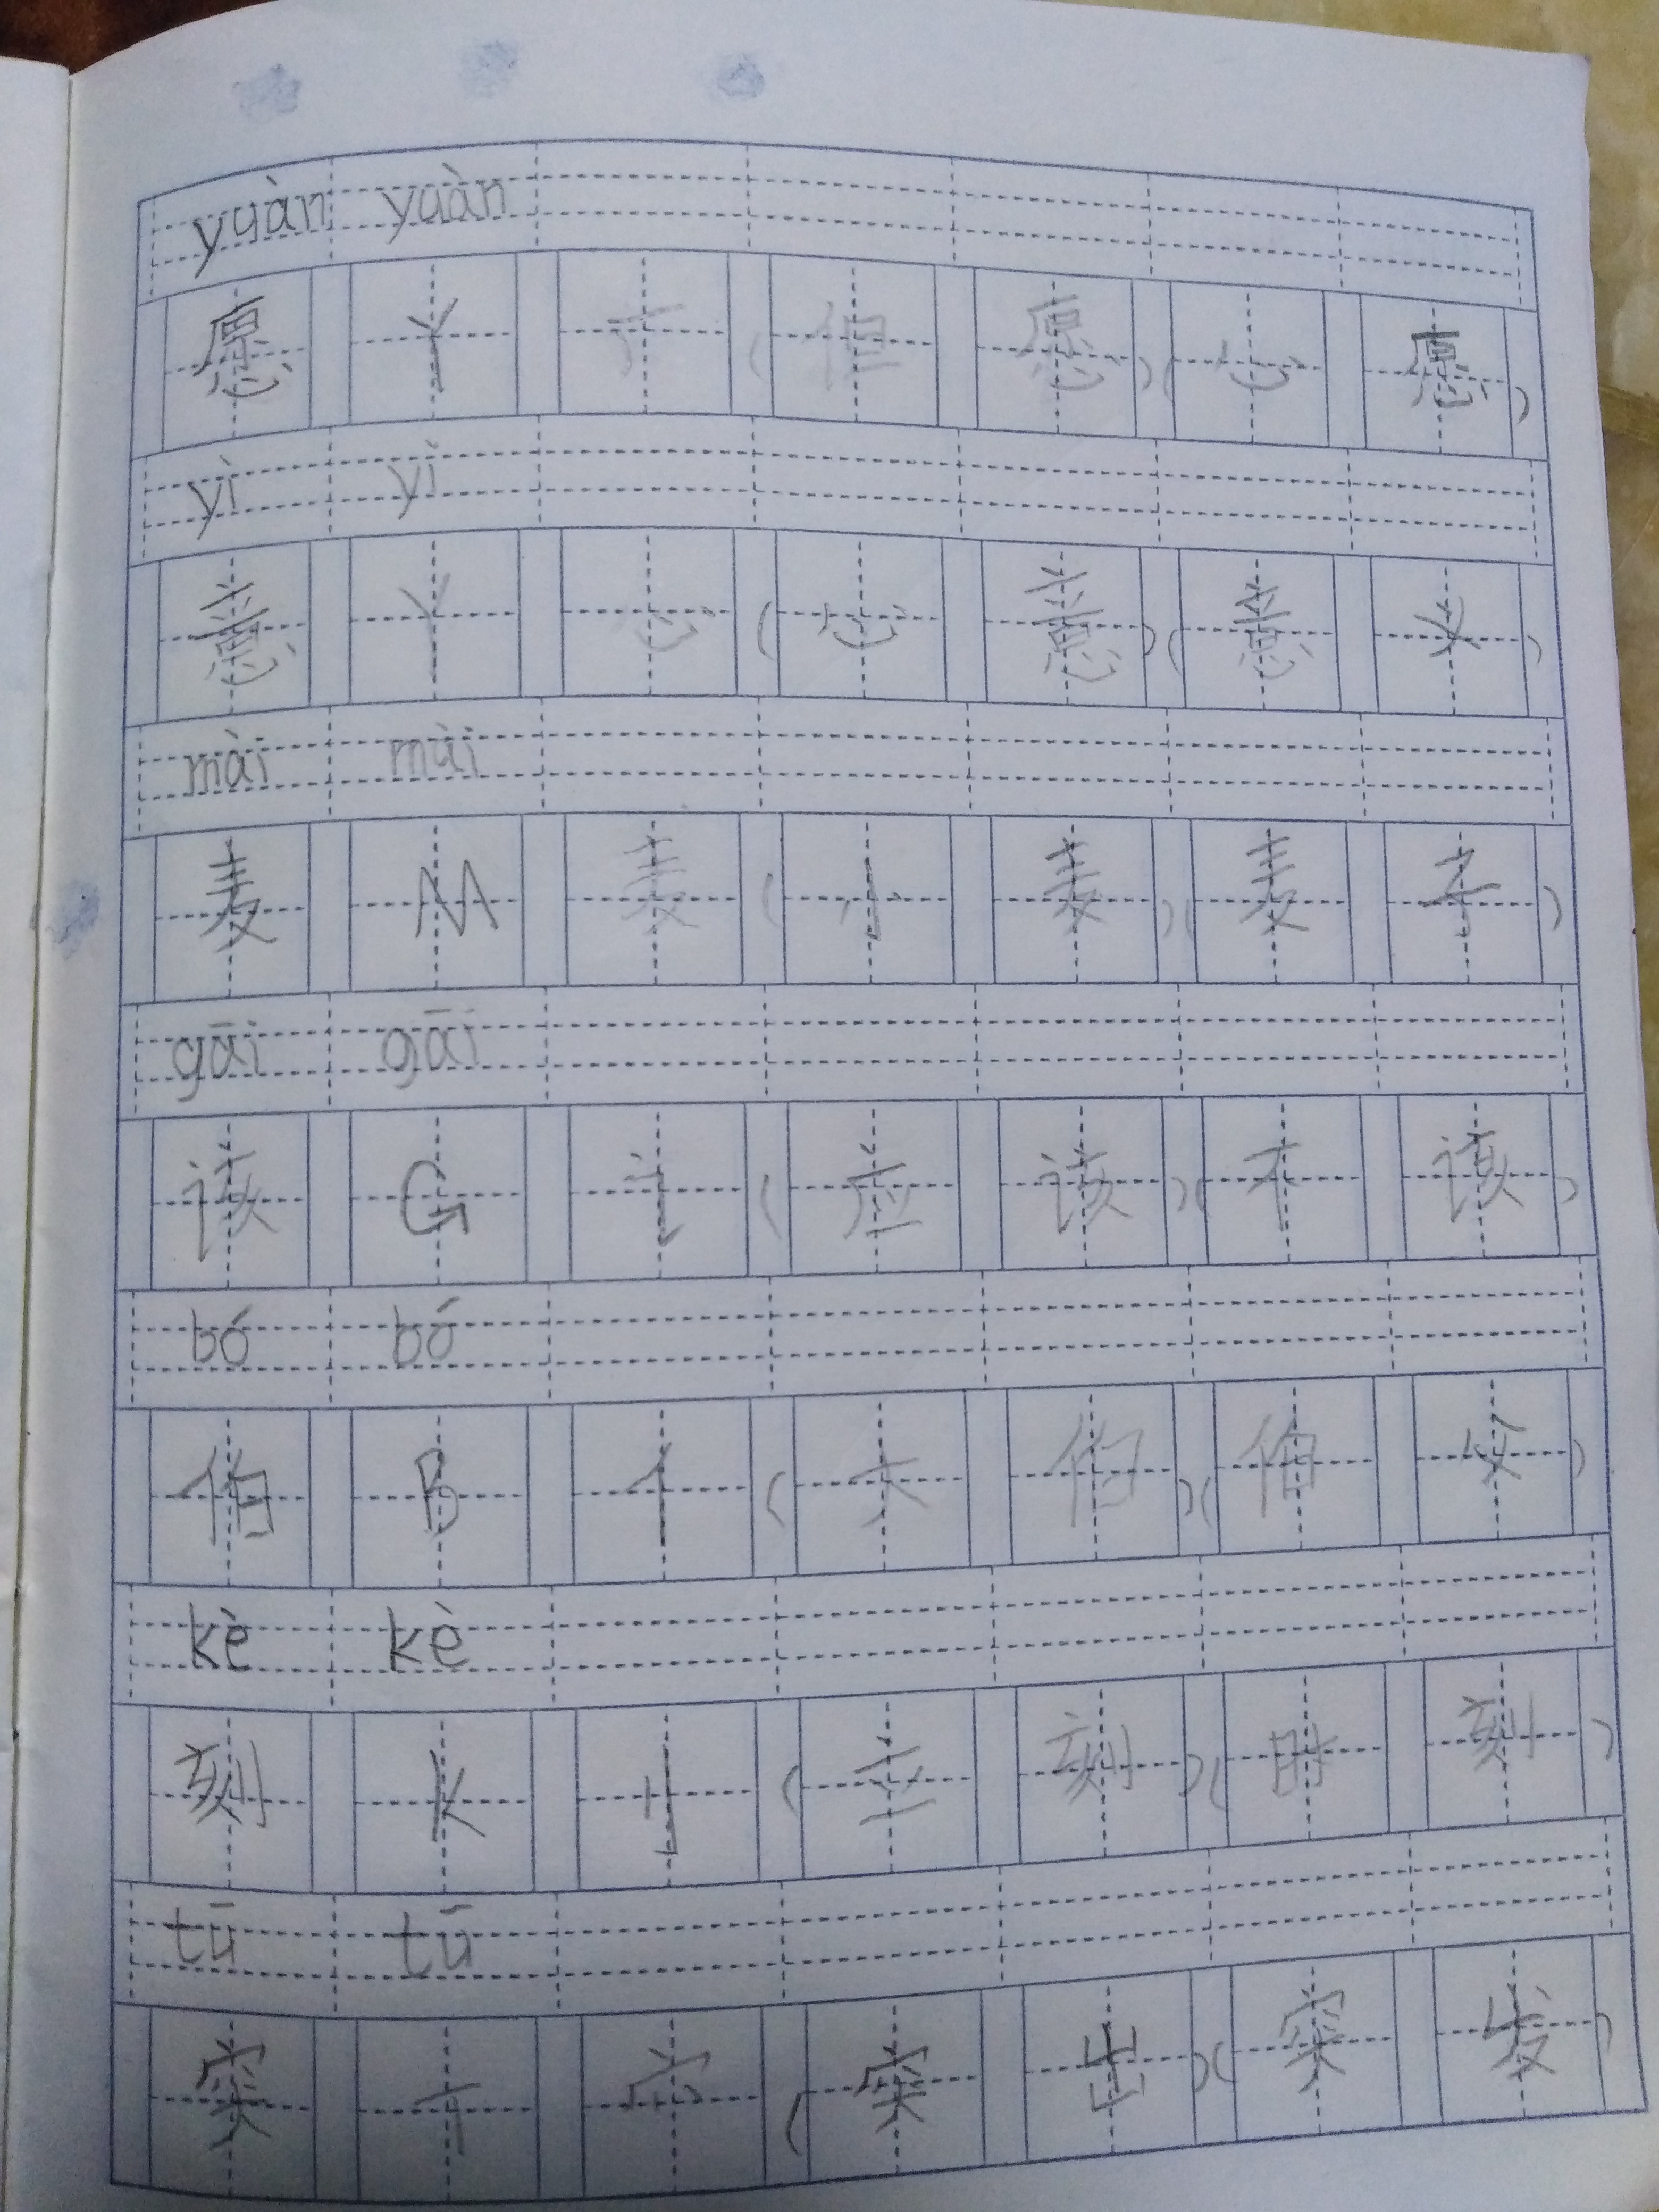 yuàn yuàn
愿 Y 厂 (但 愿)(心 愿)
yì yì
意 Y 心 (心 意)(意 义)
mài mài
麦 M 麦 (小 麦)(麦 子)
gāi gāi
该 G 讠 (应 该)(不 该)
bó bó
伯 B 亻 (大 伯)(伯 父)
kè kè
刻 K 刂 (立 刻)(时 刻)
tū tū
突 T 穴 (突 出)(突 发)